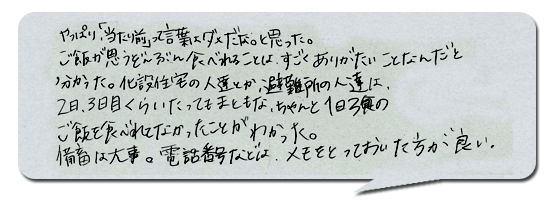 やっぱり、「当たり前」って言葉はダメだな。と思った。
ご飯が思うどんぶん食べれることは、すごくありがたいことなんだと
分かった。化設住宅の人達とか、避難所の人達は、
2日、3日目くらいたってもまともな、ちゃんと1日3食の
ご飯を食べれてなかったことがわかった。
備畜は大事。電話番号などは、メモをとっておいた方が良い。